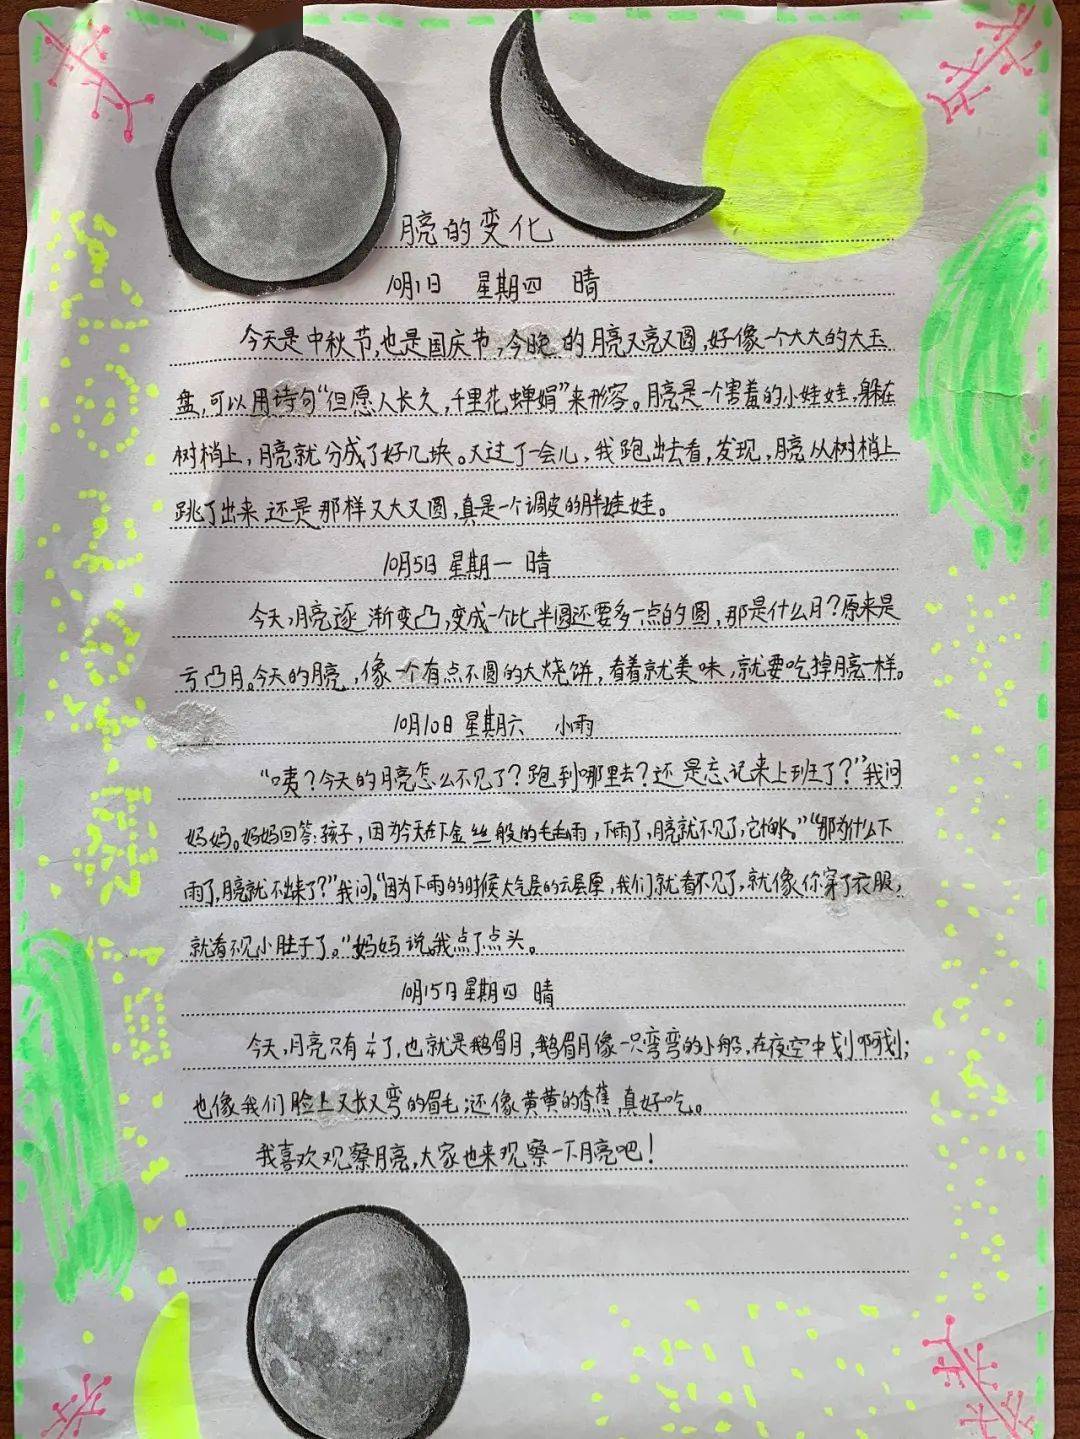 月亮的变化
10月1日 星期四 晴
今天是中秋节,也是国庆节,今晚的月亮又亮又圆,好像一个大大的大玉
盘,可以用诗句“但愿人长久,千里花蝉娟”来形容。月亮是一个害羞的小娃娃,躲在
树梢上,月亮就分成了好几块。又过了一会儿,我跑出去看,发现,月亮从树梢上
跳了出来还是那样又大又圆,真是一个调皮的胖娃娃。
10月5日 星期一 晴
今天,月亮逐渐变凸,变成一个比半圆还要多一点的圆,那是什么月?原来是
亏凸月。今天的月亮,像一个有点不圆的大烧饼,看着就美味,就要吃掉月亮一样。
10月10日 星期六 小雨
“咦?今天的月亮怎么不见了?跑到哪里去?还是忘记来上班了?”我问
妈妈。妈妈回答:孩子,因为今天在下金丝般的毛毛雨,下雨了,月亮就不见了,它怕水。”“那为什么下
雨了,月亮就不出来了?”我问。“因为下雨的时候大气层的云层厚,我们就看不见了,就像你穿了衣服,
就看不见小肚子了。”妈妈说,我点了点头。
10月15日 星期四 晴
今天,月亮只有了,也就是鹅眉月,鹅眉月像一只弯弯的小船,在夜空中划啊划;
也像我们脸上又长又弯的眉毛;还像黄黄的香蕉,真好吃。
我喜欢观察月亮,大家也来观察一下月亮吧!